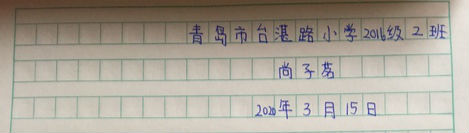 青岛市台湛路小学2016级2班
尚子茗
2020年3月15日